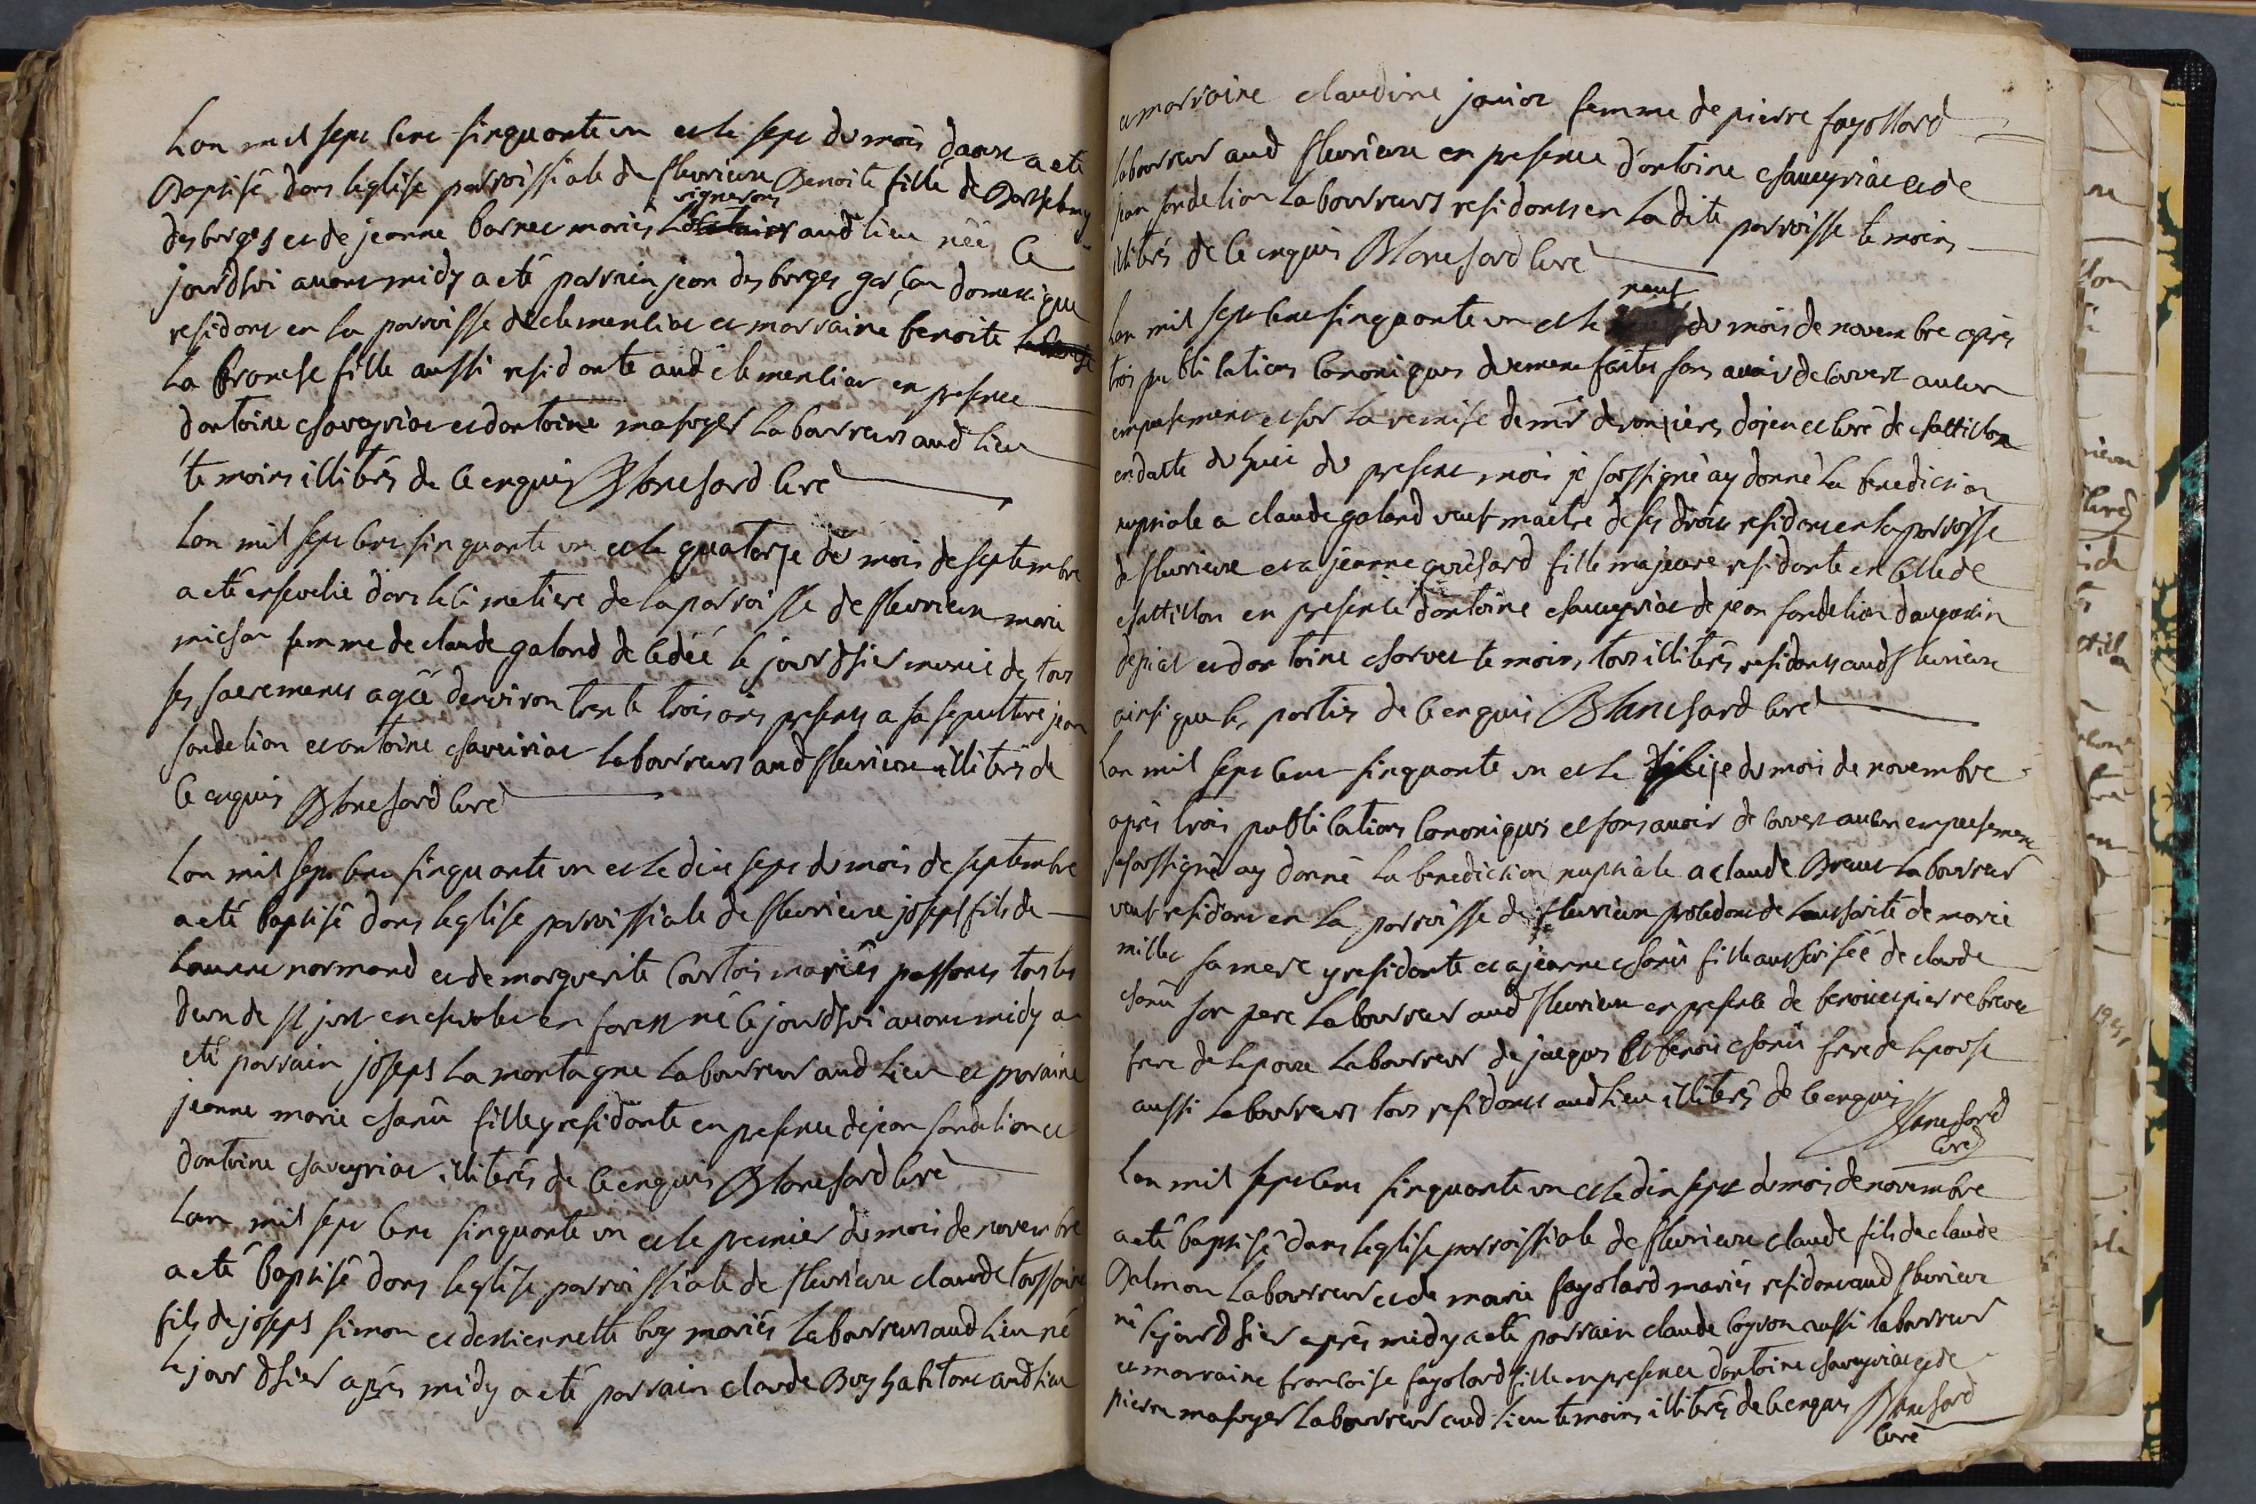 Lan mil sept cent sinquante un et le sept du mois daout a eté
Baptisé dans leglise parroissiale de fleurieux Benoite fille de Barthelemy
vignerons
desborges et de jeanne barnet mariés aud lieu née Ce
jourdhui avant midy a eté parrain jean des borges garçon domestique
residant en la parroisse de clemenciat et marraine benoite
La france fille aussi residante aud clemenciat en presence
dantoine chaveyriat et dantoine masuyer Laboureurs aud lieu
temoins illiterés de ce enquis Blanchard curé
Lan mil sept cent sinquante un et le quatorze du mois de septembre
a eté ensevelie dans le cimetiere de la parroisse de fleurieux marie
michon femme de claude galand decedéé le jour dhier munie de tous
ses sacrements agéé denviron trente trois ans presents a sa sepulture jean
sondelion et antoine chaveiriat laboureurs aud fleurieux illiterés de
ce enquis Blanchard curé
Lan mil sept cent sinquante un et le dix sept du mois de septembre
a eté baptisé dans leglise parroissiale de fleurieux joseph fils de
Laurent normand et de marguerite Courtois mariés passants tous les
deux de st just en chevalet en forest né ce jourdhui avant midy a
eté parrain joseph La montagne Laboureur aud lieu et maraine
jeanne marie chanü fille y residante en presence de jean sondelion et
dantoine chaveyriat illiterés de ce enquis Blanchard curé
Lan mil sept cent sinquante un et le premier du mois de novembre
a eté Baptisé dans leglise parroissiale de fleurieux claude toussaint
fils de joseph simon et destiennette buy mariés laboureurs aud lieu né
le jour dhier après midy a eté parrain claude Buy habitant aud lieu
et marraine claudine janiot femme de pierre fayollard
laboureur aud fleurieux en presence dantoine chaveyriat et de
jean sondelion Laboureurs residants en la dite parroisse temoins
illiterés de ce enquis Blanchard curé
neuf
Lan mil sept cent sinquante un et le du mois de novembre après
trois publications canoniques duement faites sans avoir decouvert aucun
empechement et sur la remise de mr doyen et curé de chattillon
en datte du huit du present mois je soussigné ay donné la benediction
nuptiale a claude galand veuf maitre de ses droits residant en la parroisse
de fleurieux et a jeanne guichard fille majeure residante en celle de
chattillon en presence dantoine chaveyriat de jean sondelion daugustin
depiat et dantoine charvet temoins tous illiterés residants aud fleurieux
ainsi que les parties de ce enquis Blanchard curé
Lan mil sept cent sinquante un et le seize du mois de novembre
après trois publications canoniques et sans avoir decouvert aucun empechement
je soussigné ay donné la benediction nuptiale a claude Brevet laboureur
veuf residant en la parroisse de fleurieux procedant de lauthorité de marie
millet sa mere y residante et a jeanne chanü fille authorisée de claude
chanü son pere laboureur aud fleurieux en presence de benoit et pierre brevet
frere de lepoux laboureur de jacques et benoit chanü frere de lepouse
aussi laboureurs tous residants aud lieu illiterés de ce enquis Blanchard
curé
Lan mil sept cent sinquante un et le dix sept du mois de novembre
a eté baptisé dans leglise parroissiale de fleurieux claude fils de claude
Dalmon laboureur et de marie fayolard mariés residants aud fleurieux
né le jour dhier après midy a eté parrain claude loyron aussi laboureur
et marraine francoise fayolard fille en presence dantoine chaveyriat et de
pierre masuyer laboureur aud lieu temoins illiterés de ce enquis Blanchard
curé